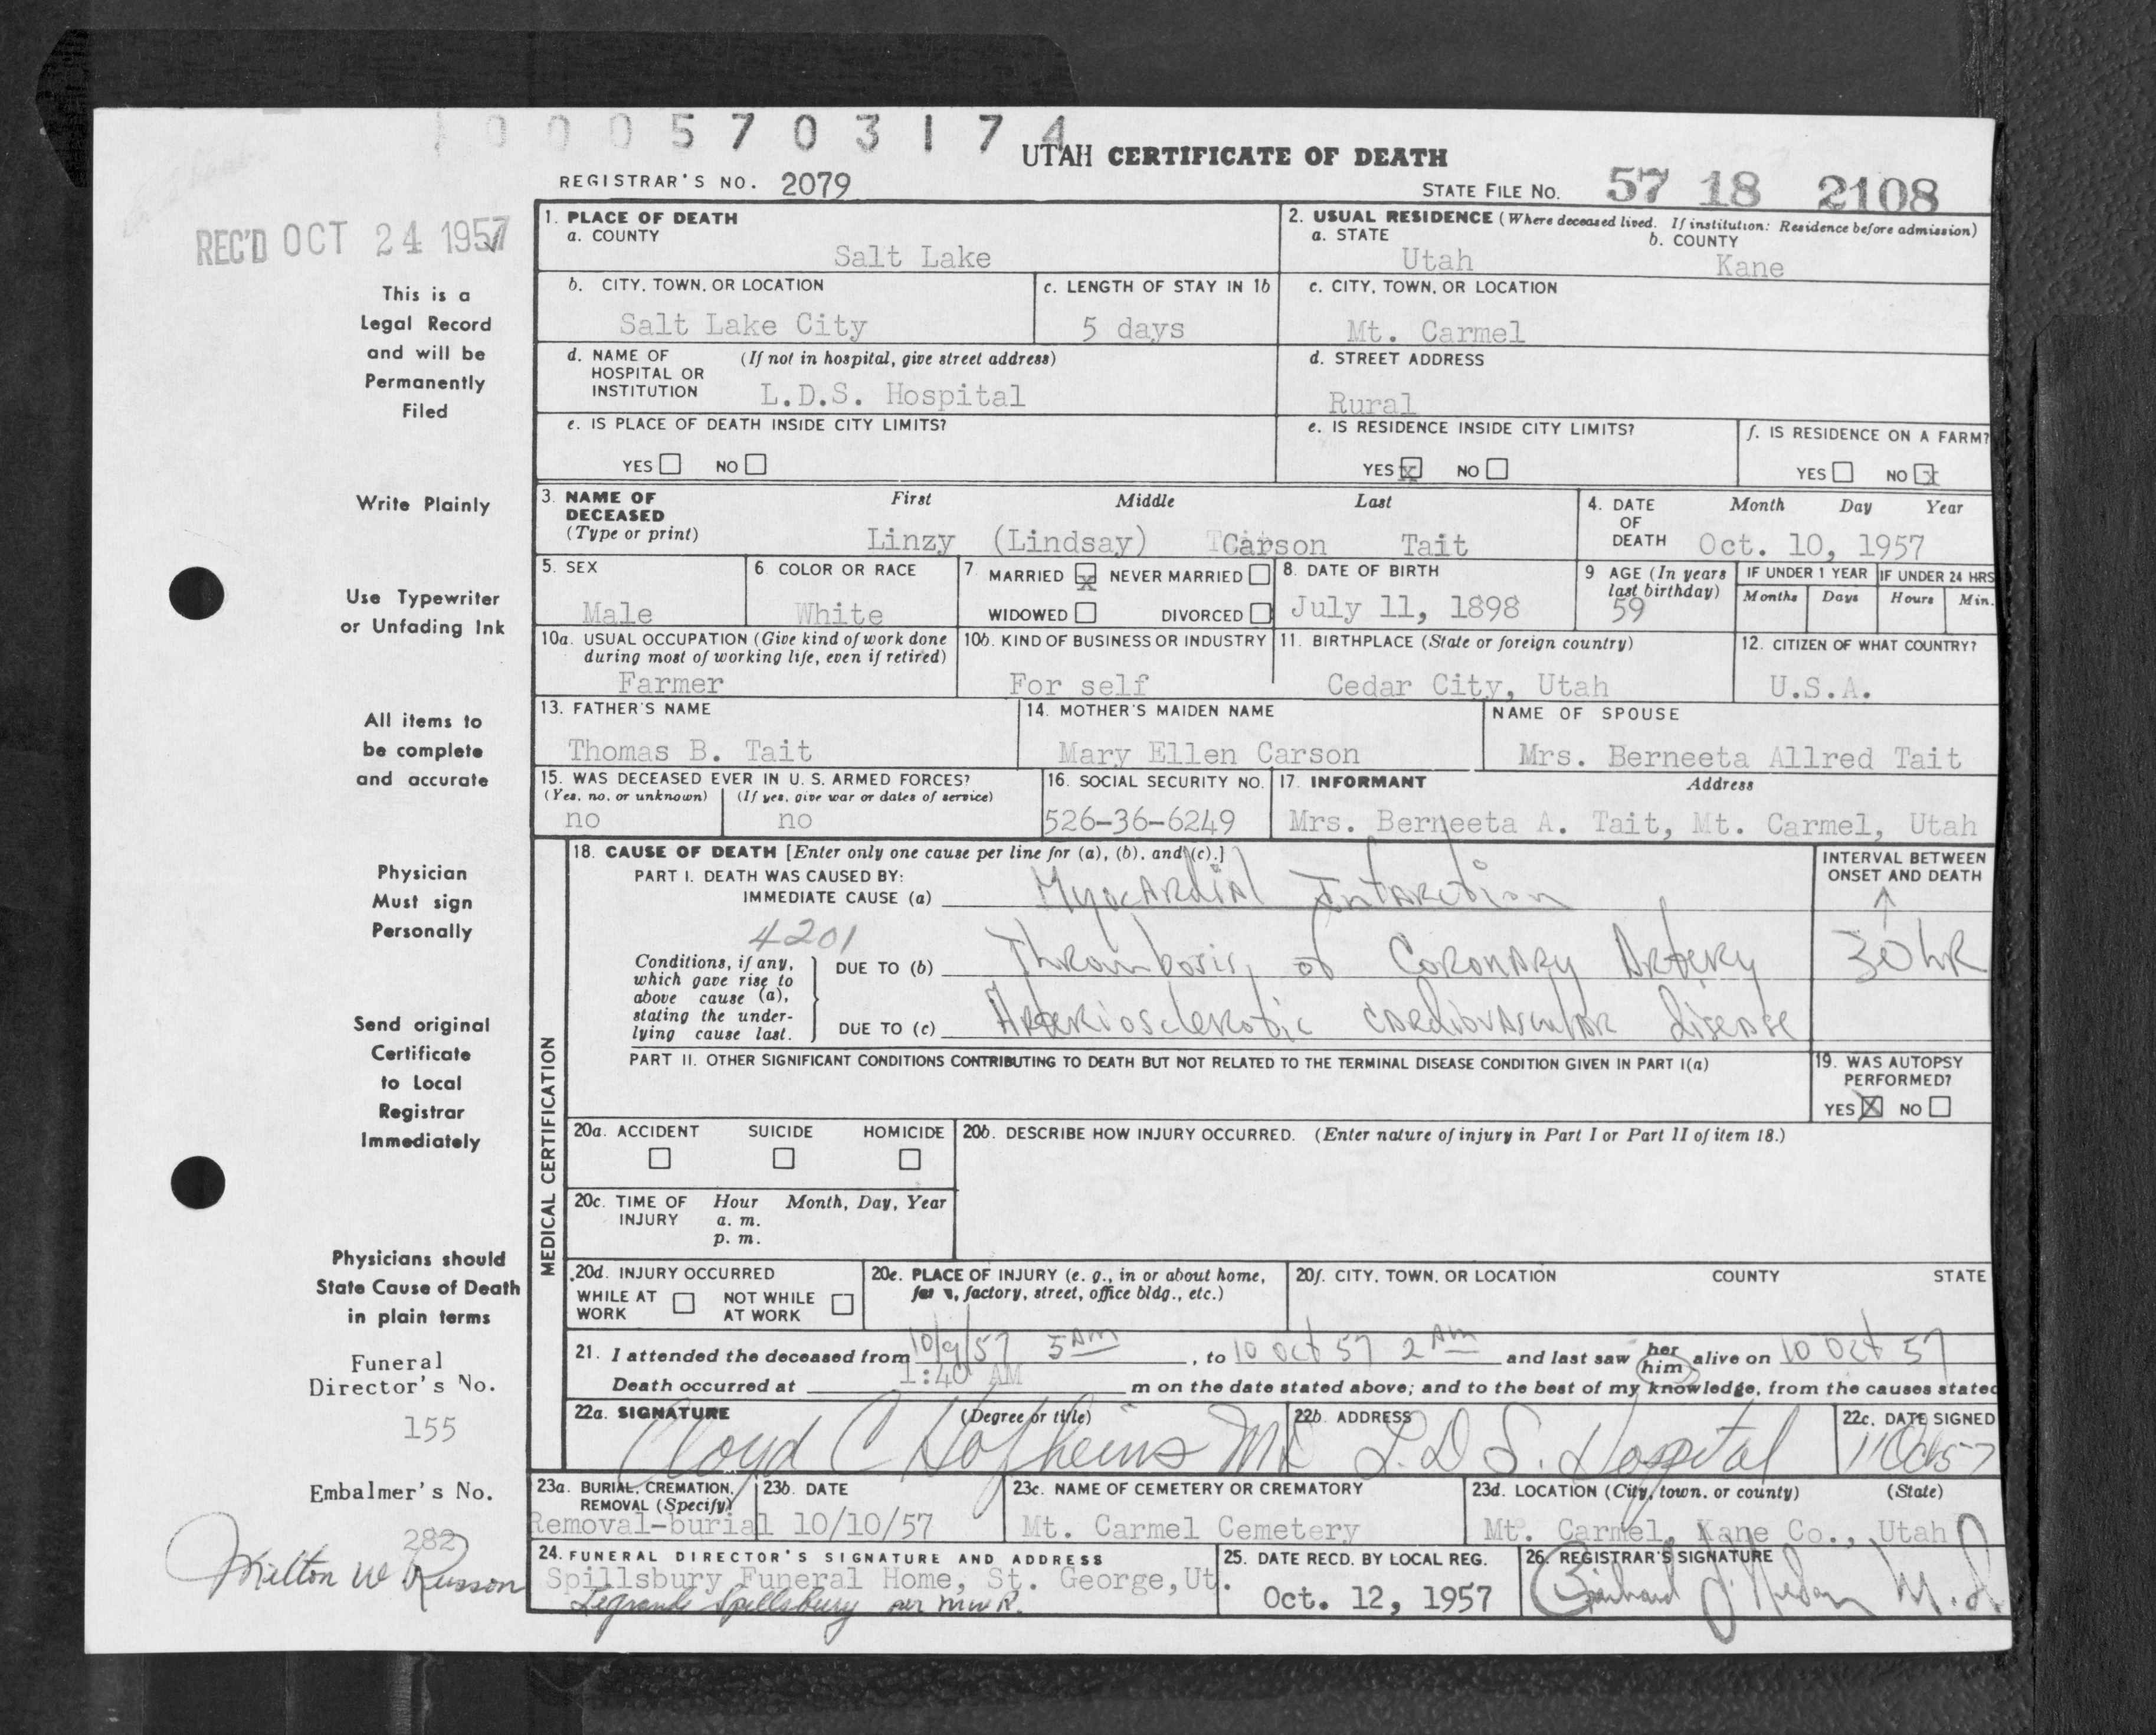 1 0 0 0 5 7 0 3 1 7 4
UTAH CERTIFICATE OF DEATH
REGISTRAR'S NO. 2079
STATE FILE NO. 57 18 2108
REC'D OCT 24 1957
This is a
Legal Record
and will be
Permanently
Filed
Write Plainly
Use Typewriter
or Unfading Ink
All items to
be complete
and accurate
Physician
Must sign
Personally
Send original
Certificate
to Local
Registrar
Immediately
Physicians should
State Cause of Death
in plain terms
Funeral
Director's No.
155
Embalmer's No.
282
Milton W Russon
1. PLACE OF DEATH
a. COUNTY
Salt Lake
2. USUAL RESIDENCE (Where deceased lived. If institution: Residence before admission)
a. STATE b. COUNTY
Utah Kane
b. CITY, TOWN, OR LOCATION
Salt Lake City
c. LENGTH OF STAY IN 1b
5 days
c. CITY, TOWN, OR LOCATION
Mt. Carmel
d. NAME OF (If not in hospital, give street address)
HOSPITAL OR
INSTITUTION L.D.S. Hospital
d. STREET ADDRESS
Rural
e. IS PLACE OF DEATH INSIDE CITY LIMITS?
YES NO
e. IS RESIDENCE INSIDE CITY LIMITS?
YES x NO
f. IS RESIDENCE ON A FARM?
YES NO x
3. NAME OF First Middle Last
DECEASED
(Type or print) Linzy (Lindsay) Carson Tait
4. DATE Month Day Year
OF
DEATH Oct. 10, 1957
5. SEX
Male
6. COLOR OR RACE
White
7. MARRIED x NEVER MARRIED
WIDOWED DIVORCED
8. DATE OF BIRTH
July 11, 1898
9 AGE (In years
last birthday)
59
IF UNDER 1 YEAR IF UNDER 24 HRS
Months Days Hours Min.
10a. USUAL OCCUPATION (Give kind of work done
during most of working life, even if retired)
Farmer
10b. KIND OF BUSINESS OR INDUSTRY
For self
11. BIRTHPLACE (State or foreign country)
Cedar City, Utah
12. CITIZEN OF WHAT COUNTRY?
U.S.A.
13. FATHER'S NAME
Thomas B. Tait
14. MOTHER'S MAIDEN NAME
Mary Ellen Carson
NAME OF SPOUSE
Mrs. Berneeta Allred Tait
15. WAS DECEASED EVER IN U. S. ARMED FORCES?
(Yes, no, or unknown) (If yes, give war or dates of service)
no no
16. SOCIAL SECURITY NO.
526-36-6249
17. INFORMANT Address
Mrs. Berneeta A. Tait, Mt. Carmel, Utah
MEDICAL CERTIFICATION
18. CAUSE OF DEATH [Enter only one cause per line for (a), (b), and (c).]
PART I. DEATH WAS CAUSED BY:
IMMEDIATE CAUSE (a) Myocardial Infarction
4201
Conditions, if any,
which gave rise to
above cause (a),
stating the under-
lying cause last.
DUE TO (b) Thrombosis of Coronary Artery
DUE TO (c) Arteriosclerotic cardiovascular disease
INTERVAL BETWEEN
ONSET AND DEATH
↑
30 hR
PART II. OTHER SIGNIFICANT CONDITIONS CONTRIBUTING TO DEATH BUT NOT RELATED TO THE TERMINAL DISEASE CONDITION GIVEN IN PART I(a)
19. WAS AUTOPSY
PERFORMED?
YES X NO
20a. ACCIDENT SUICIDE HOMICIDE
20b. DESCRIBE HOW INJURY OCCURRED. (Enter nature of injury in Part I or Part II of item 18.)
20c. TIME OF Hour Month, Day, Year
INJURY a. m.
p. m.
20d. INJURY OCCURRED
WHILE AT NOT WHILE
WORK AT WORK
20e. PLACE OF INJURY (e. g., in or about home,
farm, factory, street, office bldg., etc.)
20f. CITY, TOWN, OR LOCATION COUNTY STATE
21. I attended the deceased from 10/9/57 5 AM, to 10 Oct 57 2 AM and last saw her him alive on 10 Oct 57
Death occurred at 1:40 AM m on the date stated above; and to the best of my knowledge, from the causes stated
22a. SIGNATURE (Degree or title)
Cloyd C Hofheins MD
22b. ADDRESS
L.D.S. Hospital
22c. DATE SIGNED
11 Oct 57
23a. BURIAL, CREMATION,
REMOVAL (Specify)
Removal-burial
23b. DATE
10/10/57
23c. NAME OF CEMETERY OR CREMATORY
Mt. Carmel Cemetery
23d. LOCATION (City, town, or county) (State)
Mt. Carmel, Kane Co., Utah
24. FUNERAL DIRECTOR'S SIGNATURE AND ADDRESS
Spillsbury Funeral Home, St. George, Ut.
Legrande Spillsbury per MWR.
25. DATE RECD. BY LOCAL REG.
Oct. 12, 1957
26. REGISTRAR'S SIGNATURE
M.D.